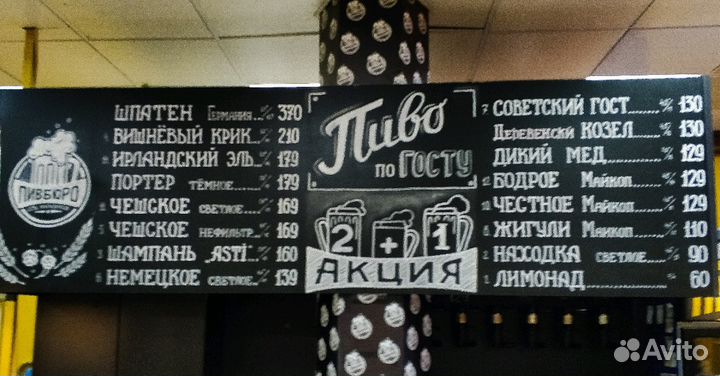 ШПАТЕН Германия 370
ВИШНЁВЫЙ КРИК 210
ИРЛАНДСКИЙ ЭЛЬ 179
ПОРТЕР тёмное 179
ЧЕШСКОЕ светлое 169
ЧЕШСКОЕ нефильтр. 169
ШАМПАНЬ „ASTI" 160
НЕМЕЦКОЕ светлое 139
ПИВБЮРО
Пиво
по ГОСТУ
2+1
АКЦИЯ
СОВЕТСКИЙ ГОСТ 130
Деревенски КОЗЕЛ 130
ДИКИЙ МЕД 129
БОДРОЕ Майкоп 129
ЧЕСТНОЕ Майкоп 129
ЖИГУЛИ Майкоп 110
НАХОДКА светлое 90
ЛИМОНАД 60
Avito